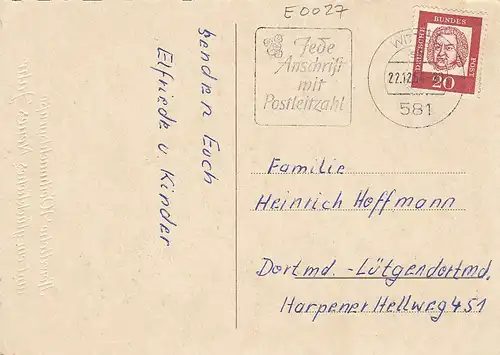 E0027
Jede
Anschrift
mit
Postleitzahl
22.12.64
581
DEUTSCHE
BUNDES
POST
20
senden Euch
Elfriede u. Kinder
Familie
Heinrich Hoffmann
Dortmd.-Lütgendortmd.
Harpener Hellweg 451